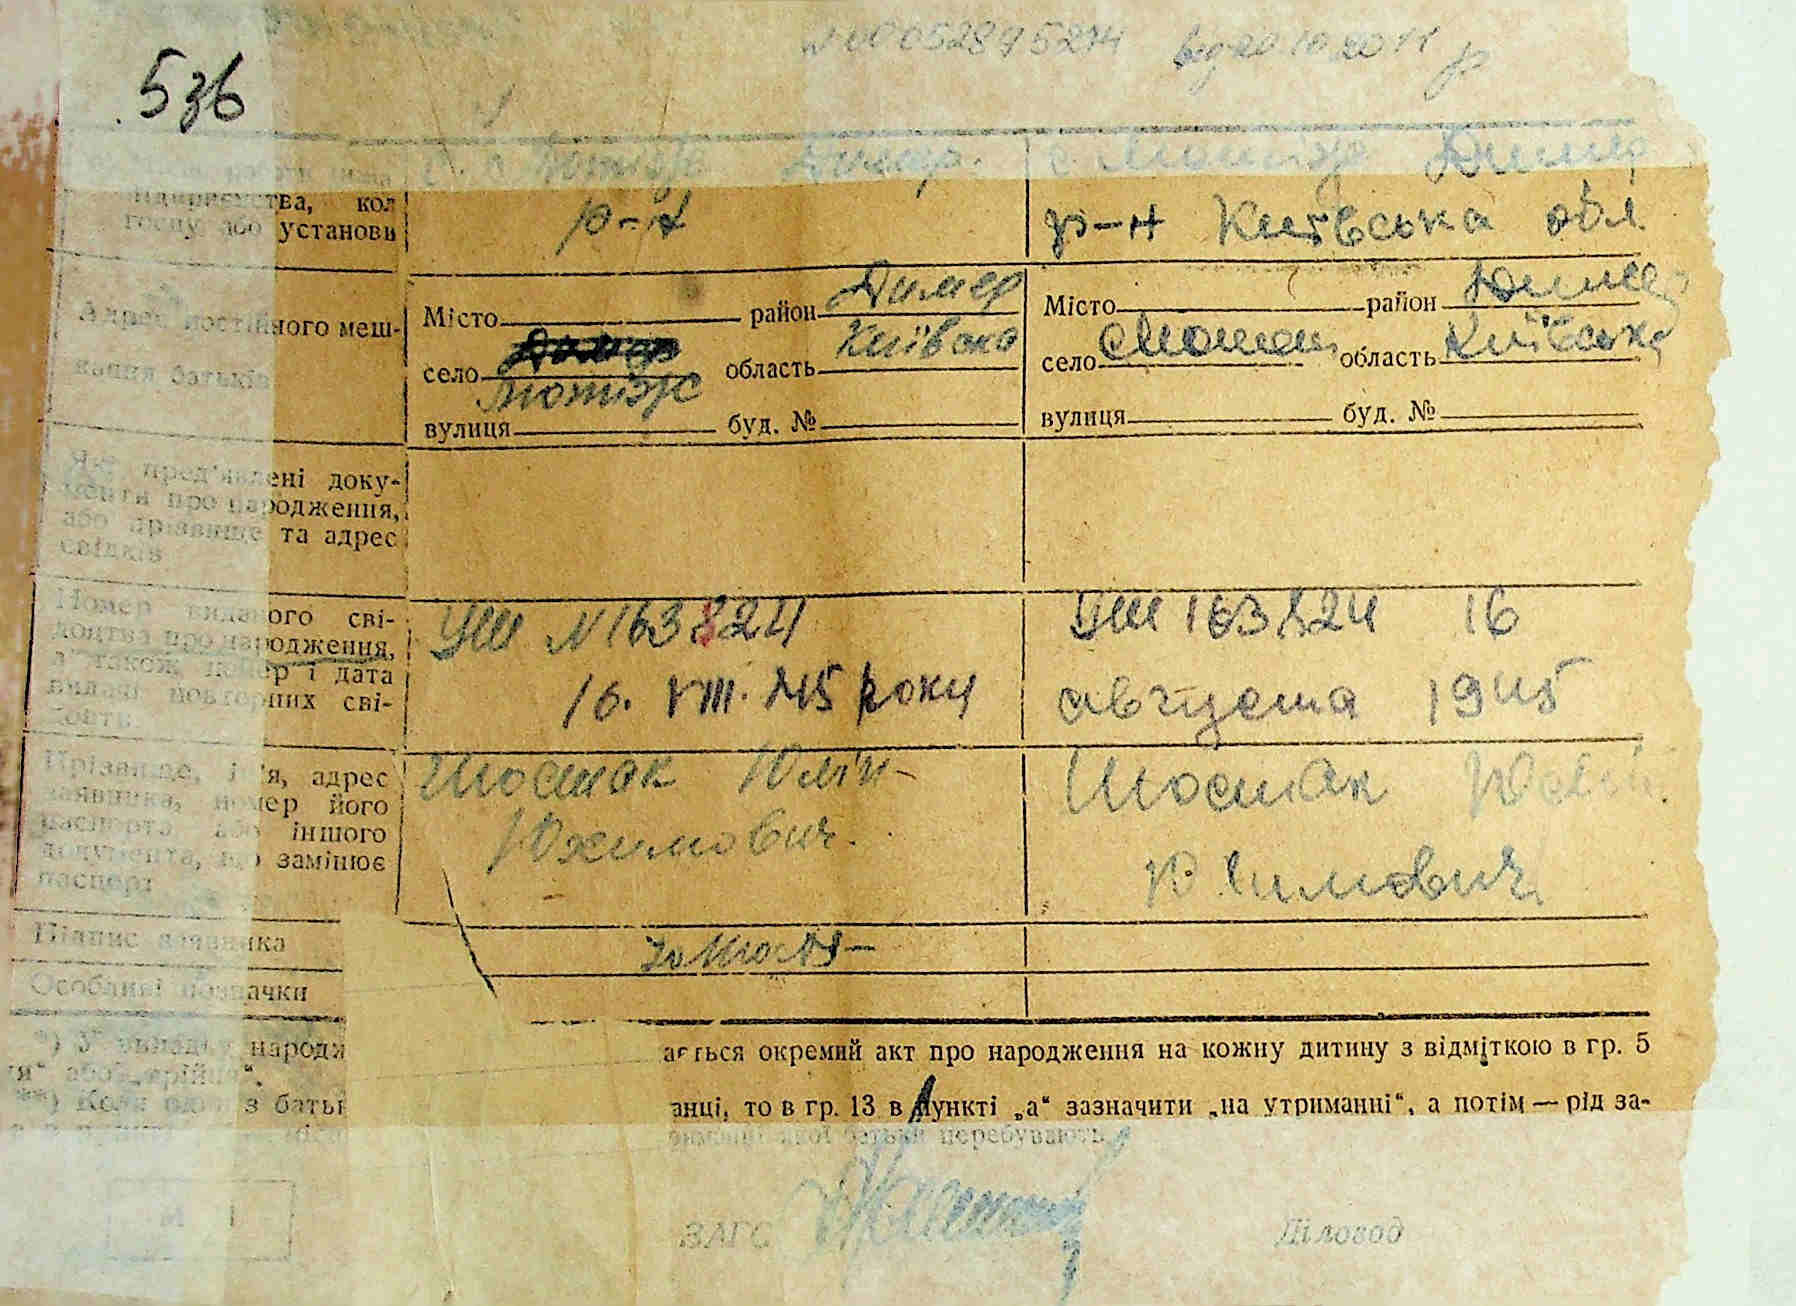 N 00052895274 від 20.10.2011 р
536
підприємства, кол
госпу або установи
Димер.
р-н
Димер
р-н Київська обл
Адрес постійного меш-
кання батьків
Місто район Димер
село Димер область Київська
Тотіж
вулиця буд. №
Місто район Димер
село область Київська
вулиця буд. №
Які пред'явлені доку-
менти про народження,
або прізвище та адрес
свідків
Номер виданого сві-
доцтва про народження,
а також номер і дата
видачі повторних сві-
доцтв.
УШ N 163824
16. VIII. 45 року
УШ 163824 16
августа 1945
Прізвище, ім'я, адрес
заявника, номер його
паспорта або іншого
документа, що замінює
паспорт
Шостак Юлій
Юхимович.
Шостак Юлій
Юхимович
Підпис заявника
Особливі позначки
*) У випадку народж
ається окремий акт про народження на кожну дитину з відміткою в гр. 5
„трійня“.
**) Коли один з батьк
анці, то в гр. 13 в пункті „а“ зазначити „на утриманні“, а потім — рід за-
якої батьки перебувають
М
ЗАГС
Діловод